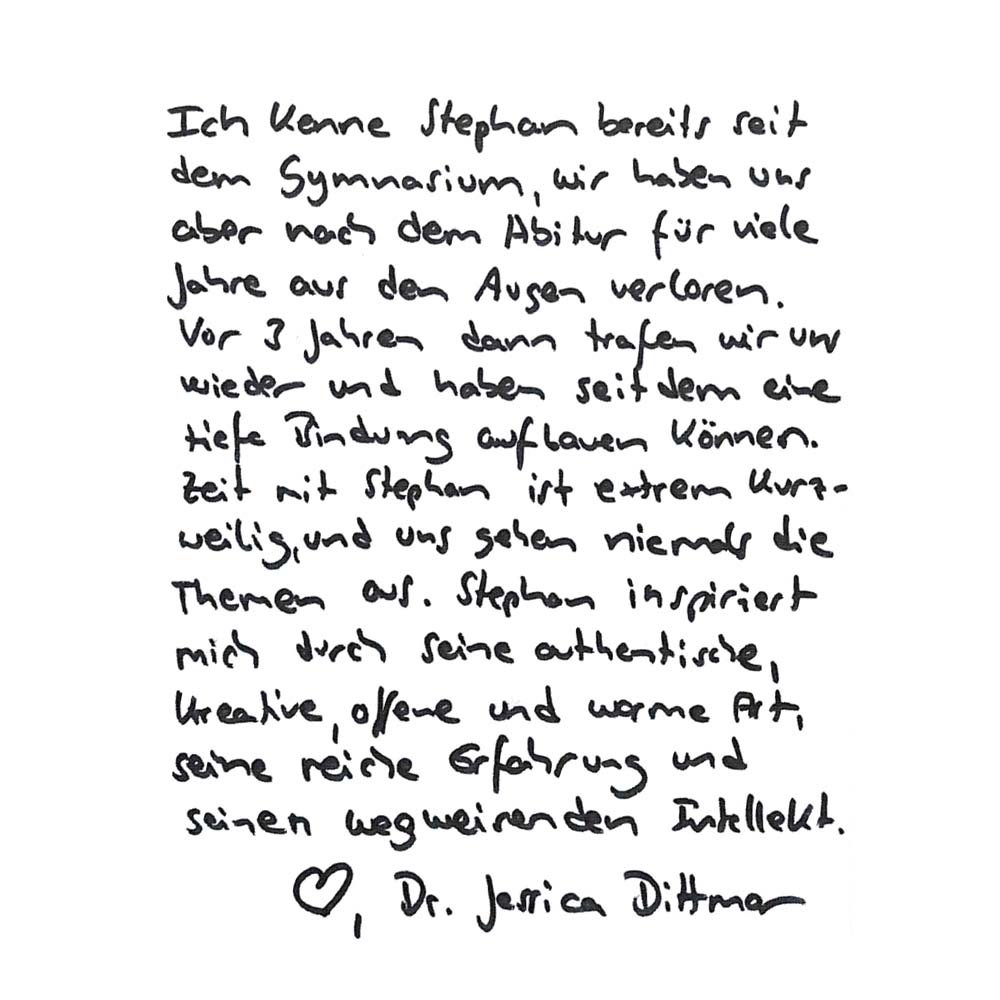 Ich kenne Stephan bereits seit
dem Gymnasium, wir haben uns
aber nach dem Abitur für viele
Jahre aus den Augen verloren.
Vor 3 Jahren dann trafen wir uns
wieder und haben seit dem eine
tiefe Bindung aufbauen können.
Zeit mit Stephan ist extrem kurz-
weilig, und uns gehen niemals die
Themen aus. Stephan inspiriert
mich durch seine authentische,
kreative, offene und warme Art,
seine reiche Erfahrung und
seinen wegweisenden Intellekt.
♡, Dr. Jessica Dittmar